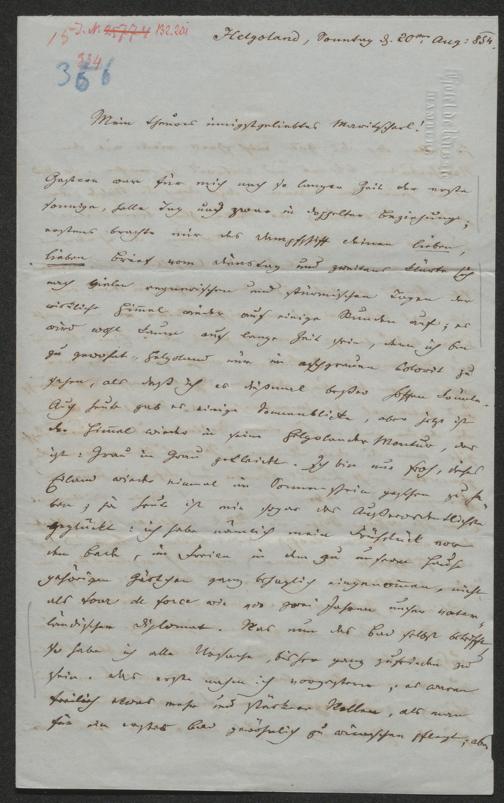 J. N. 25774 132.201
15
334
366
Helgoland, Sonntag d. 20ten Aug: 854.
Mein theures innigstgeliebtes Maritscherl!
Gestern war für mich nach so langer Zeit der erste
sonnige, helle Tag und zwar in doppelter Beziehung;
erstens brachte mir das Dampfschiff deinen lieben,
lieben Brief vom Dienstag und zweitens klärte sich
nach vielen regnerischen und stürmischen Tagen der
wirkliche Himmel wieder auf einige Stunden auf; es
wird wohl kaum auf lange Zeit sein, denn ich bin
zu gewohnt, Helgoland nur im aschgrauen Colorit zu
sehen, als daß ich es dießmal besser hoffen könnte.
Auch heute gab es einige Sonnenblicke, aber jetzt ist
der Himmel wieder in seine Helgolander Montur, das
ist: Grau in Grau gekleidet. Ich bin nur froh, dieses
Eiland wieder einmal im Sonnenschein gesehen zu ha-
ben; ja heute ist mir sogar das Außerordentlichste
geglückt: ich habe nämlich mein Frühstück vor
dem Bade, im Freien in dem zu unserm Hause
gehörigen Gärtchen ganz behaglich eingenommen, nicht
als tour de force wie vor zwei Jahren unser vater-
ländischer Diplomat. Was nun das Bad selbst betrifft,
so habe ich alle Ursache, bisher ganz zufrieden zu
sein. Das erste nahm ich vorgestern; es waren
freilich etwas mehr und stärkere Wellen, als man
für ein erstes Bad gewöhnlich zu wünschen pflegt, aber